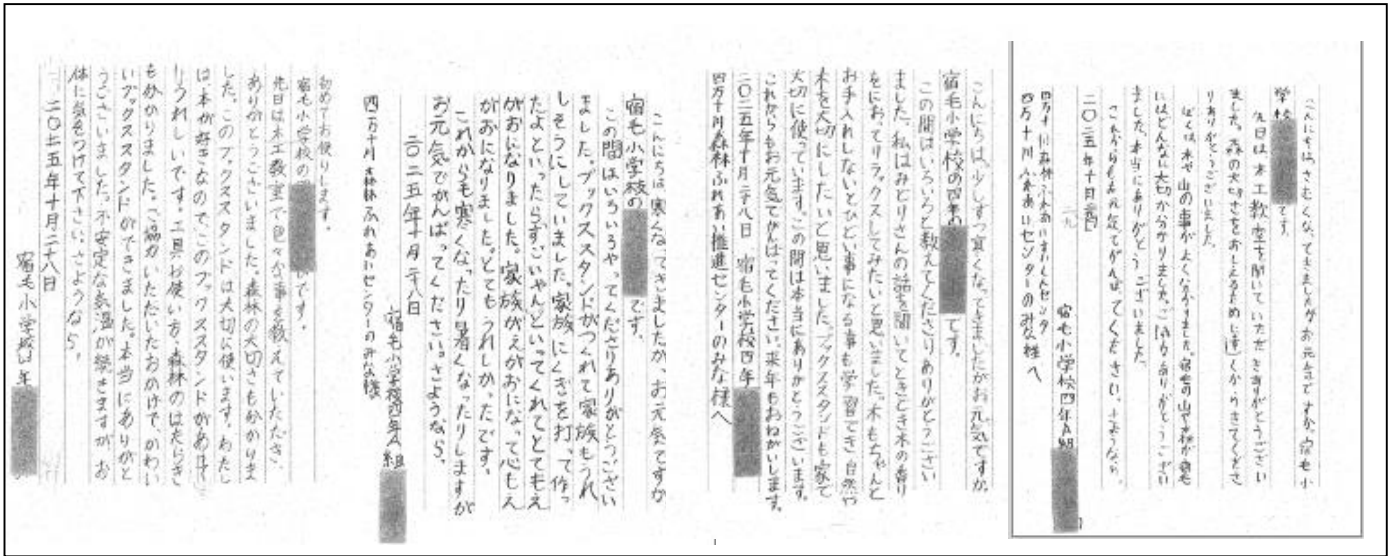 こんにちは、さむくなってきましたがお元気ですか。宿毛小
学校 です。
先日は木工教室を開いていただきありがとうござい
ました。森の大切さをおしえるために遠くからきてくださ
りありがとうございました。
ぼくは、木や山の事がよく わかりました。宿毛の山や林が宿毛
にはどんなに大切か分かりました。ご協力ありがとうござい
ました。本当にありがとうございました。
これからもお元気でがんばってください。さようなら。
二〇二五年十月
宿毛小学校四年A組
四万十川森林ふれあいすいしんセンター
四万十川ふれあいセンターのみな様へ
こんにちは。少しずつ寒くなってきましたがお元気ですか。
宿毛小学校の四年の です。
この間はいろいろと教えてくださりありがとうござい
ました。私はみどりさんの話を聞いてときどき木の香り
をにおってリラックスしてみたいと思いました。木もちゃんと
お手入れしないとひどい事になる事も学習でき自然や
木を大切にしたいと思いました。ブックスタンドも家で
大切に使っています。この間は本当にありがとうございます。
これからもお元気でがんばってください。来年もおねがいします。
二〇二五年十月二八日 宿毛小学校四年
四万十川森林ふれあい推進センターのみな様へ
こんにちは寒くなってきましたが、お元気ですか
宿毛小学校の です。
この間はいろいろやってくださりありがとうござい
ました。ブックスタンドがつくれて家族もうれ
しそうにしていました。家族にくぎを打って作っ
たよといったらすごいやんといってくれてとてもえ
がおになりました。家族がえがおになって心もえ
がおになりました。とてもうれしかったです。
これからも寒くなったり暑くなったりしますが
お元気でがんばってください。さようなら。
二〇二五年十月二八日
宿毛小学校四年A組
四万十川森林ふれあいセンターのみな様
初めてお便りします。
宿毛小学校の です。
先日は木工教室で色々な事を教えていただき、
ありがとうございました。森林の大切さも分かりま
した。このブックスタンドは大切に使います。わたし
は、本が好きなので、このブックスタンドがあると
うれしいです。工具お使い方、森林のはたらき
も分かりました。ご協力いただいたおかげで、かわい
いブックスタンドができました。本当にありがと
うございました。不安定な気温が続きますが、お
体に気をつけて下さい。さようなら。
二〇二五年十月二十八日
宿毛小学校四年